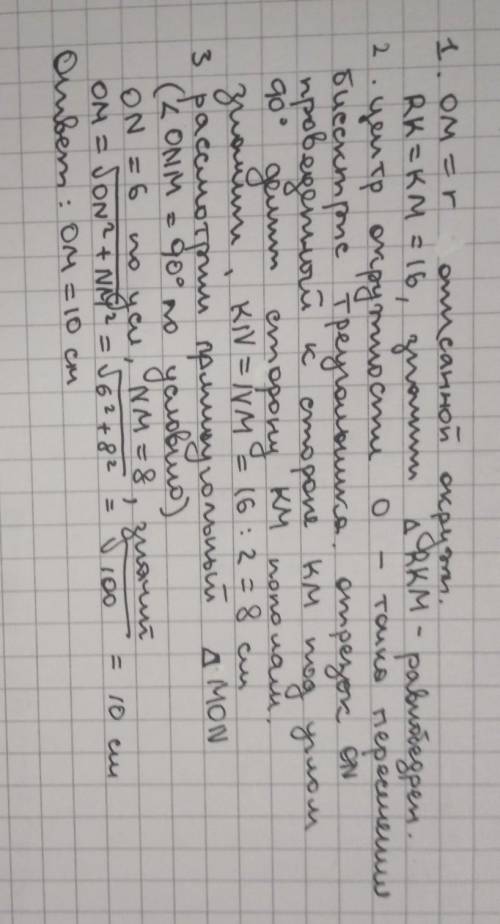 1. OM = r описанной окружн.
RK = KM = 16, значит △ RKM - равнобедрен.
2. центр окружности O - точка пересечения
биссектрис треугольника. отрезок ON
проведенный к стороне KM под углом
90° делит сторону KM пополам.
значит, KN = NM = 16 : 2 = 8 см
3 рассмотрим прямоугольный △ MON
(∠ ONM = 90° по условию)
ON = 6 по усл, NM = 8, значит
OM = √ON² + NM² = √6² + 8² = √100 = 10 см
Ответ: OM = 10 см